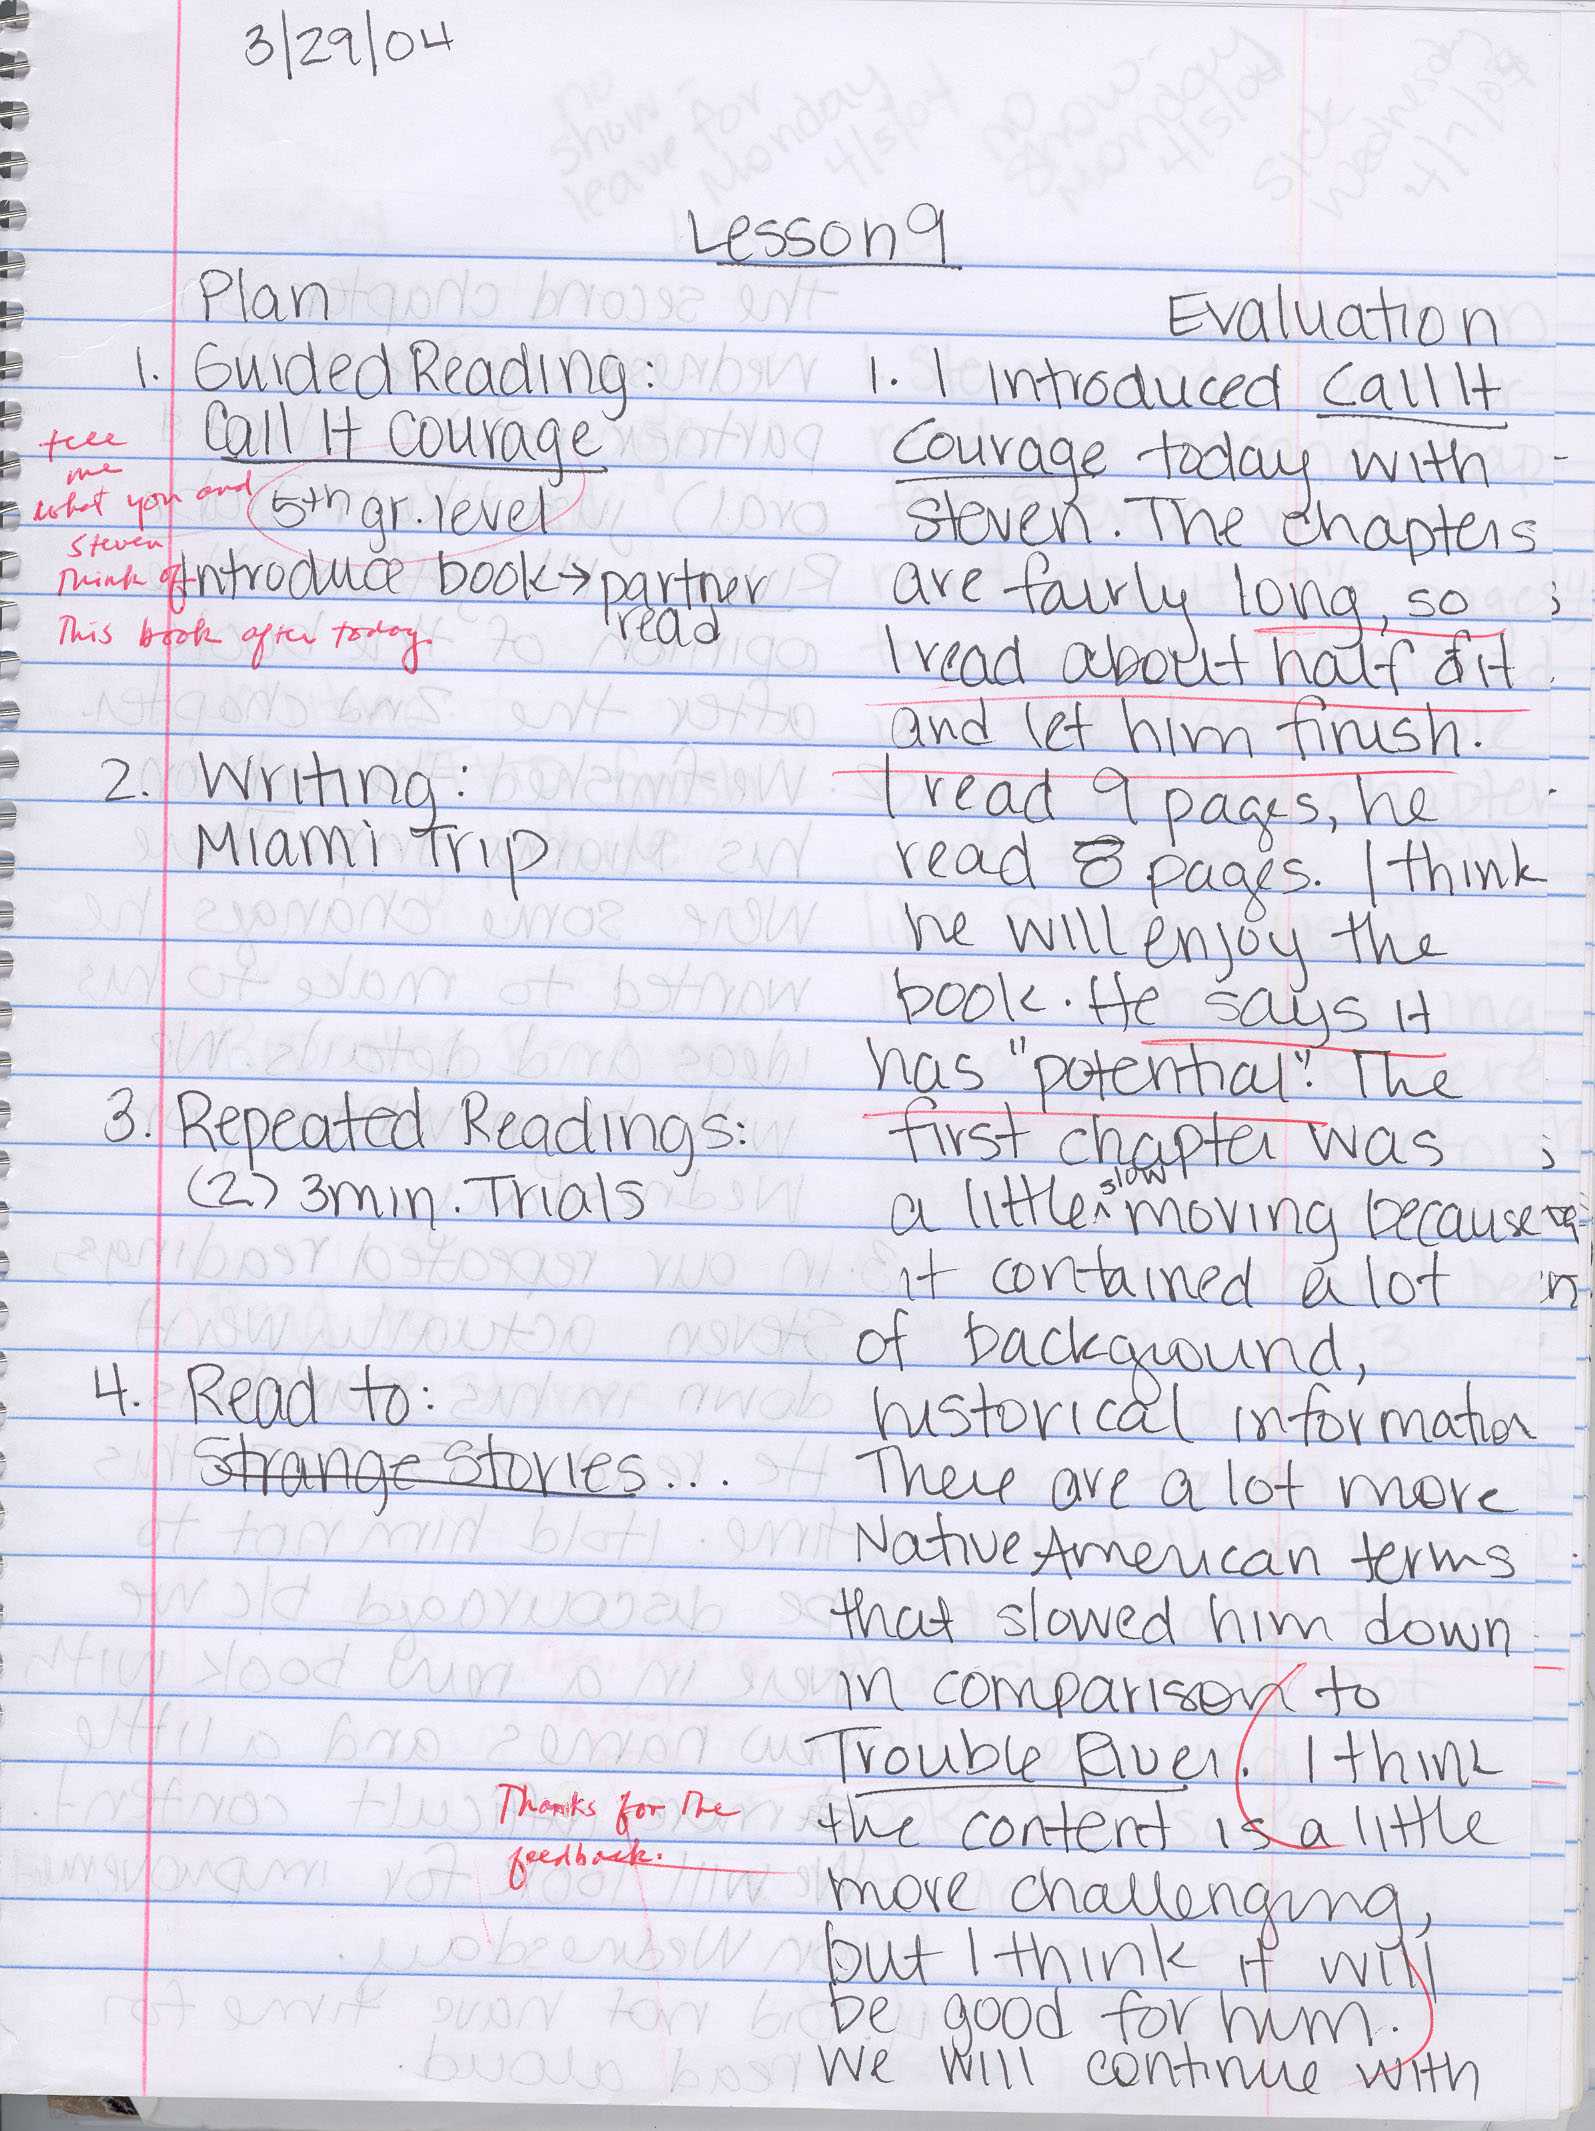 3/29/04
Lesson 9
Plan
1. Guided Reading:
Call It Courage
5th gr. level
Introduce book → partner
read
tell
me
what you and
Steven
think of
this book after today.
2. Writing:
Miami Trip
3. Repeated Readings:
(2) 3min. Trials
4. Read to:
Strange Stories...
Thanks for the
feedback.
Evaluation
1. I introduced Call It
Courage today with
Steven. The chapters
are fairly long, so
I read about half of it
and let him finish.
I read 9 pages, he
read 8 pages. I think
he will enjoy the
book. He says it
has "potential". The
first chapter was
a little slow moving because
it contained a lot
of background,
historical information
There are a lot more
Native American terms
that slowed him down
in comparison to
Trouble River. I think
the content is a little
more challenging,
but I think it will
be good for him.
We will continue with